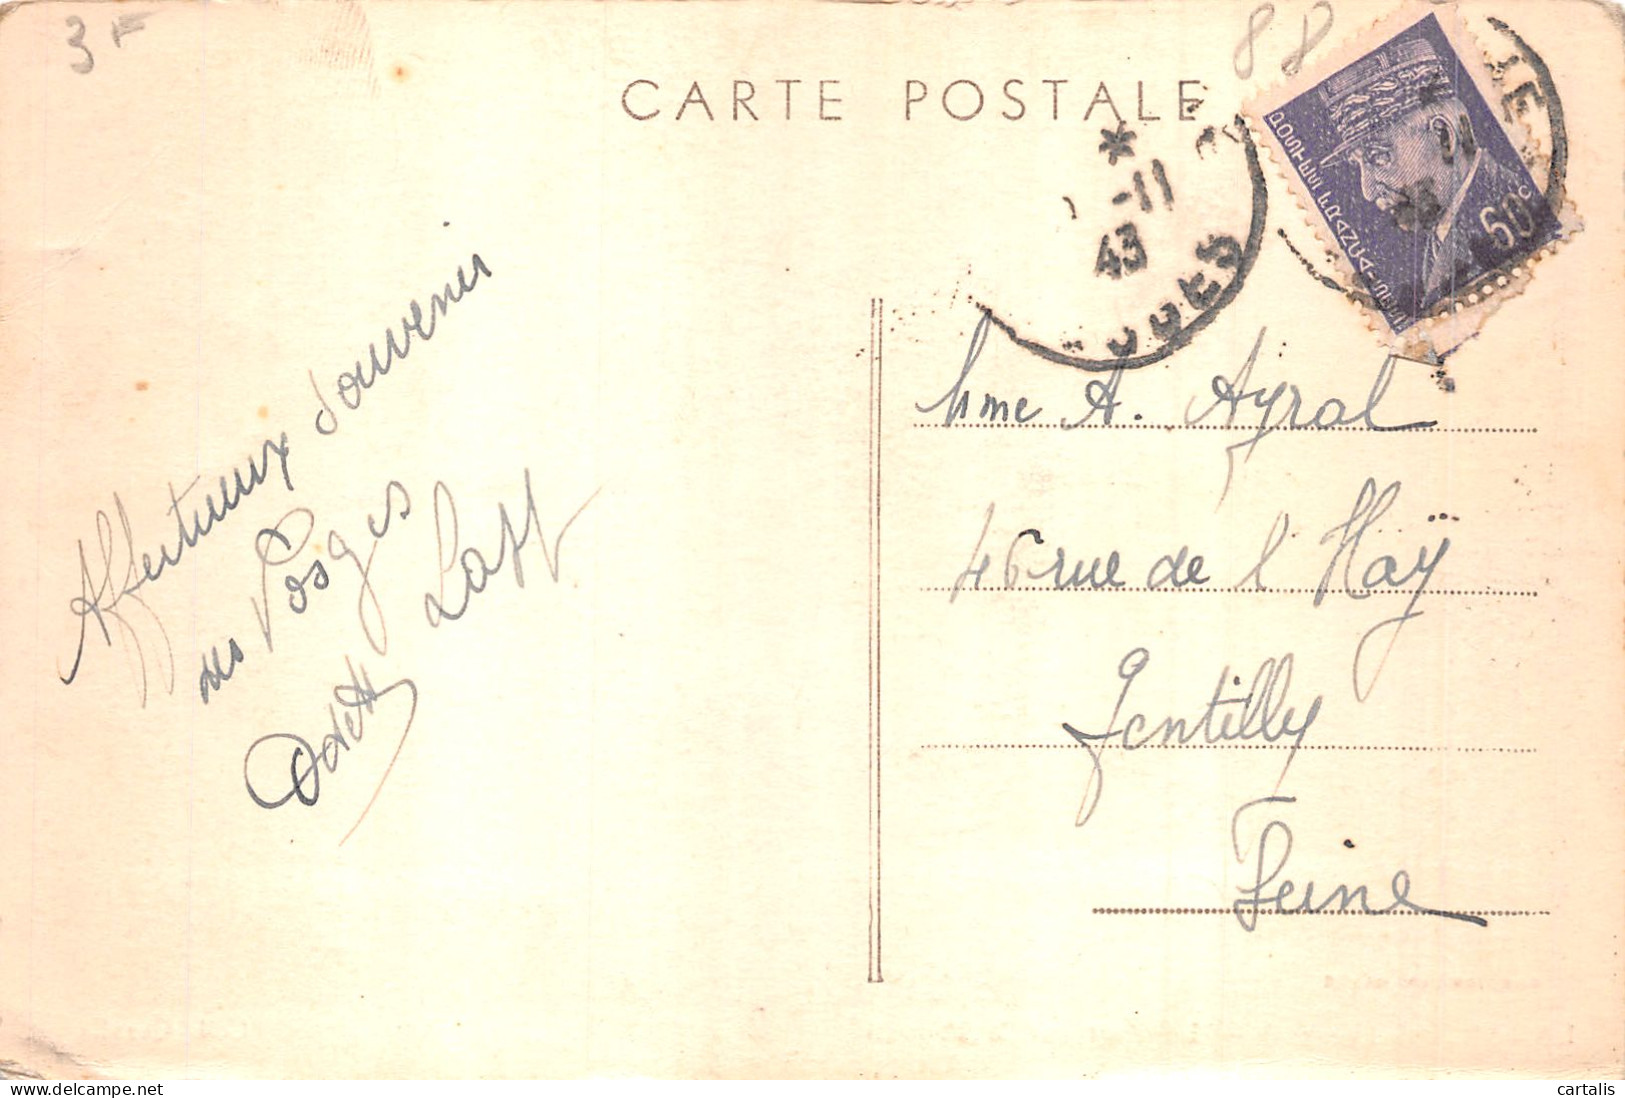 3F
88
CARTE POSTALE
POSTES FRANÇAISES
50c
-11
43
Affectueux souvenir
des Vosges
Odette
Mme A. Ayral
46 rue de l'Haÿ
Gentilly
Seine
www.delcampe.net
cartalis